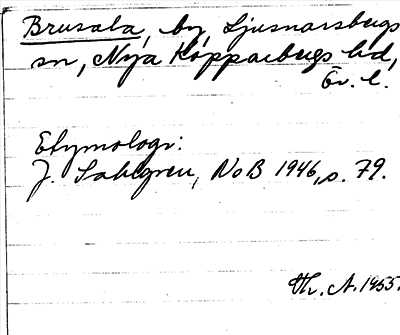 Brusala, by, Ljusnarsbergs
sn, Nya Kopparbergs hd,
Ör. l.
Etymologi:
J. Sahlgren, NoB 1946, s. 79.
A. 1955.